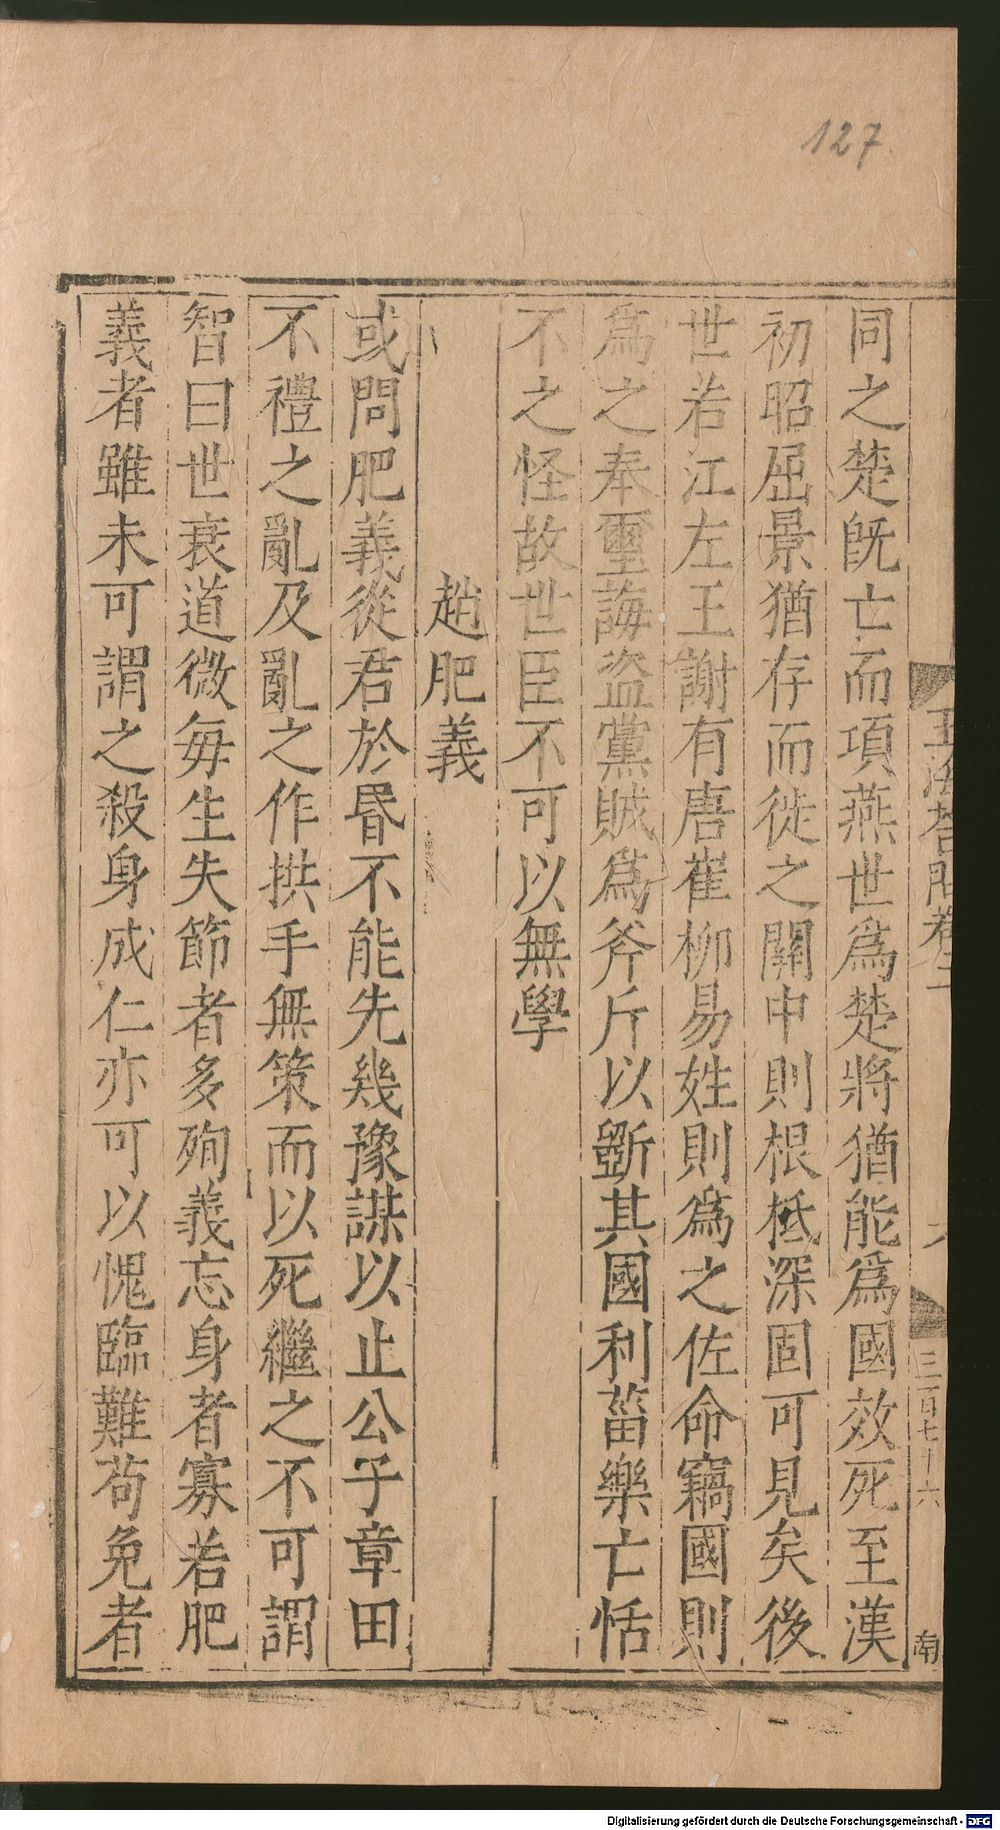 127
同之楚旣亡而項燕世爲楚將猶能爲國效死至漢
初昭屈景猶存而徙之關中則根柢深固可見矣後
世若江左王謝有唐崔柳易姓則爲之佐命竊國則
爲之奉璽誨盜黨賊爲斧斤以斲其國利菑樂亡恬
不之怪故世臣不可以無學
趙肥義
或問肥義從君於昬不能先幾豫謀以止公子章田
不禮之亂及亂之作拱手無策而以死繼之不可謂
智曰世衰道微每生失節者多殉義忘身者寡若肥
義者雖未可謂之殺身成仁亦可以愧臨難苟免者
玉海答問卷二
六
三百七十六
南
Digitalisierung gefördert durch die Deutsche Forschungsgemeinschaft - DFG